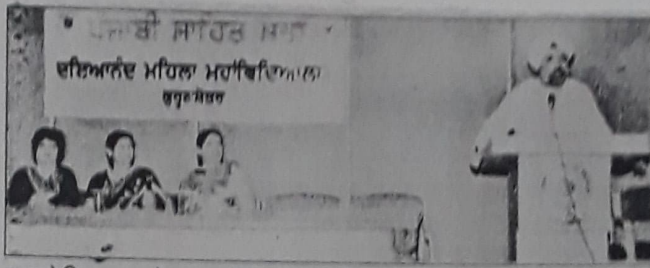 ਪੰਜਾਬੀ ਸਾਹਿਤ
ਦਇਆਨੰਦ ਮਹਿਲਾ ਮਹਾਂਵਿਦਿਆਲਾ
ਕੁਰੂਕਸ਼ੇਤਰ